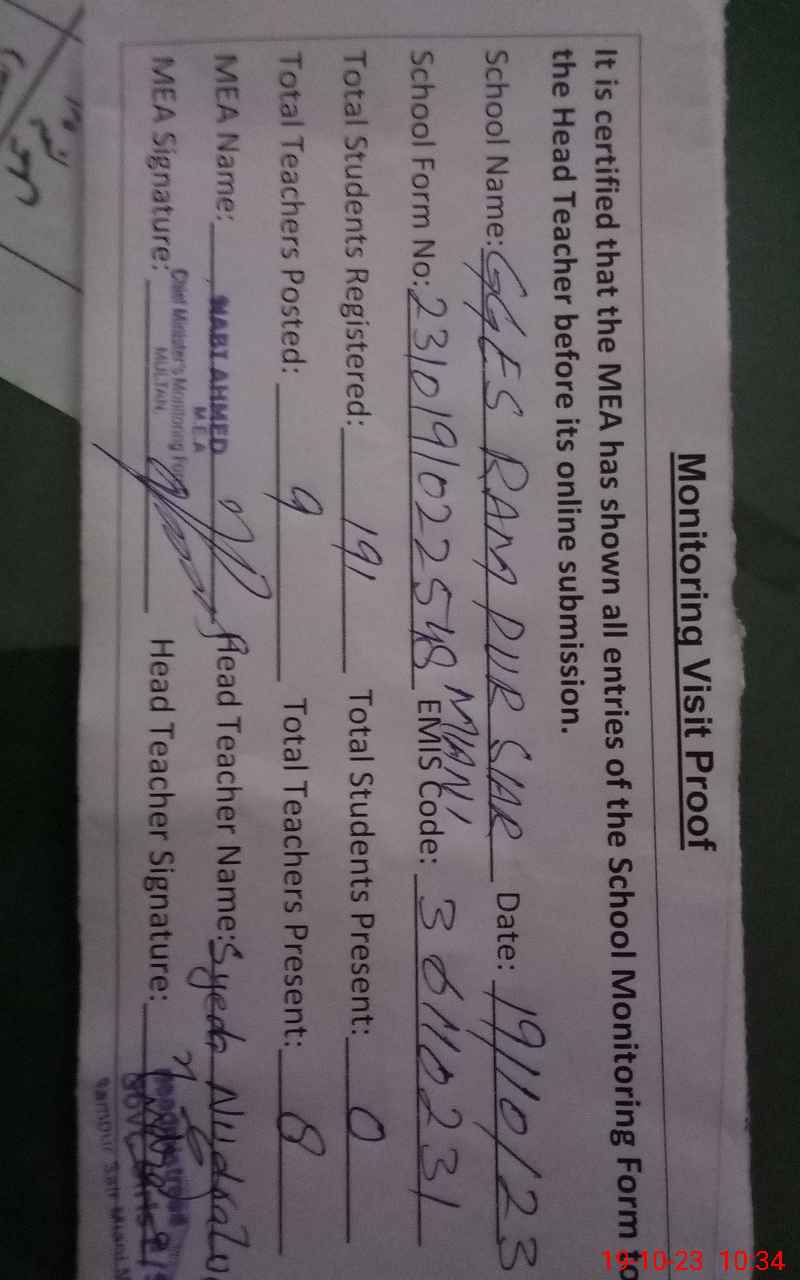 Monitoring Visit Proof
It is certified that the MEA has shown all entries of the School Monitoring Form to
the Head Teacher before its online submission.
School Name: GGES RAM PUR SAR Date: 19/10/23
MIANI
School Form No: 2310191022548 EMIS Code: 36110231
Total Students Registered: 191 Total Students Present: 0
Total Teachers Posted: 9 Total Teachers Present: 8
MEA Name: NABI AHMED Head Teacher Name: Syeda
M.E.A
Chief Minister's Monitoring
MULTAN
MEA Signature: Head Teacher Signature:
GOVT. GIRLS
Rampur
19-10-23 10:34